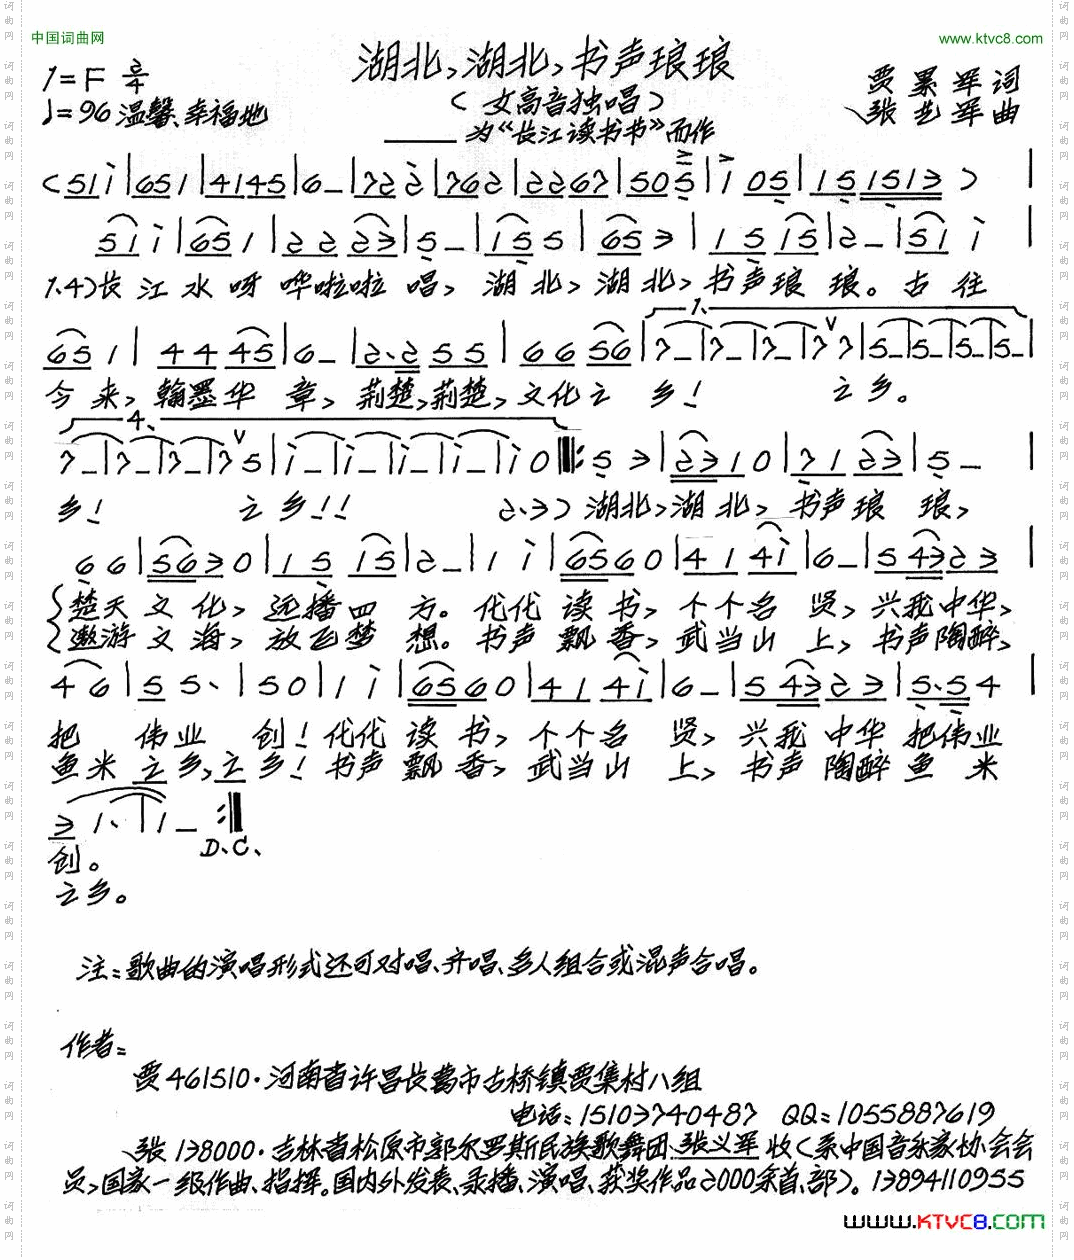 中国词曲网
www.ktvc8.com
湖北,湖北,书声琅琅
1=F 2/4
贾累军词
(女高音独唱)
♩=96 温馨、幸福地
张艺军曲
——为“长江读书节”而作
(51i|651|4145|6–|722|762|2267|505|i 05|151513)
51i|651|2223|5–|155|653|1515|2–|51i|
1.4)长江水呀哗啦啦唱,湖北,湖北,书声琅琅。古往
651|4445|6–|2.255|6656|7–|7–|7–|77|5–|5–|5–|5–|
今来,翰墨华章,荆楚,荆楚,文化之乡!之乡。
4.
7–|7–|7–|75|i–|i–|i–|i–|i0:53|2310|7123|5–|
乡!之乡!!2.3)湖北,湖北,书声琅琅,
66|5630|1515|2–|1i|6560|414i|6–|54323|
楚天文化,远播四方。代代读书,个个名贤,兴我中华,
遨游文海,放飞梦想。书声飘香,武当山上,书声陶醉,
46|55.|50|1i|6560|414i|6–|54323|5.54|
把伟业创!代代读书,个个名贤,兴我中华把伟业
鱼米之乡,之乡!书声飘香,武当山上,书声陶醉鱼米
31.|1–:
D.C.
创。
之乡。
注:歌曲的演唱形式还可对唱、齐唱、多人组合或混声合唱。
作者:
贾461510·河南省许昌长葛市古桥镇贾集村八组
电话:15103740487 QQ:1055887619
张138000·吉林省松原市郭尔罗斯民族歌舞团、张义军收(系中国音乐家协会会
员,国家一级作曲、指挥。国内外发表、录播、演唱、获奖作品2000余首、部)。13894110955
www.KTVC8.com